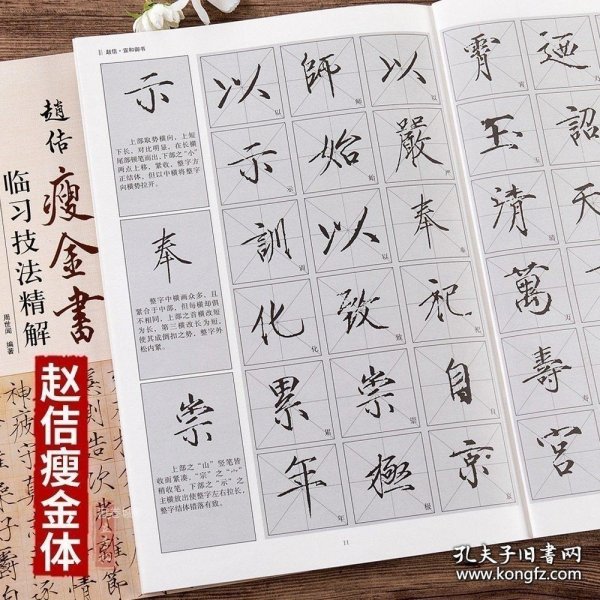 赵佶·宣和御书
示
上部取势横向，上短
下长，对比明显，在长横
尾部顿笔而出，下部之“小”
两点上移，紧收，整字方
正结体，但以中横将整字
向横势拉开。
奉
整字中横画众多，且
聚合于中部，但每横却俱
不相同，上部之首横改短
为长，第三横改长为短，
使其成倒扣之势，整字外
松内紧。
崇
上部之“山”竖笔皆
收而紧凑，“宗”之“宀”
稍收笔，下部之“示”之
主横放出使整字左右拉长，
整字结体错落有致。
以師以
示始嚴
訓以奉
化致祀
累崇自
年極京
霄迺
玉詔
清天
萬
壽
宮
11
趙佶
瘦金書
临习技法精解
周世闻 编著
赵佶瘦金体
孔夫子旧书网
www.kongfz.com